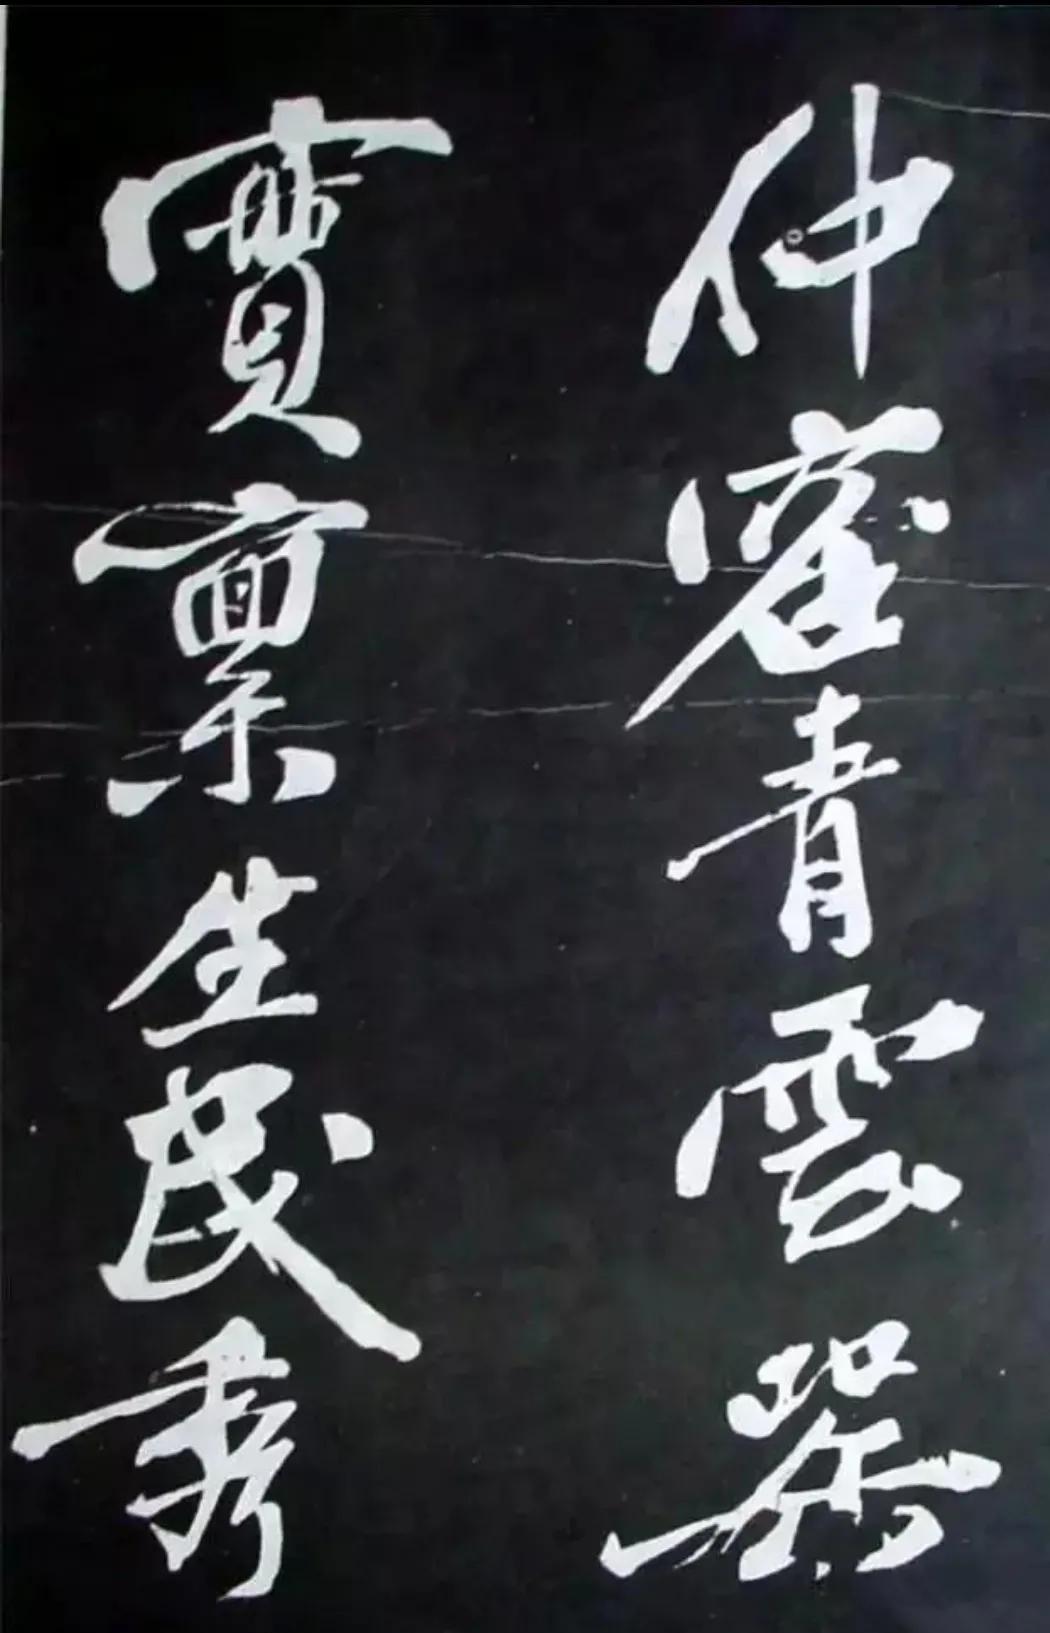 仲容青雲器
實稟生民秀